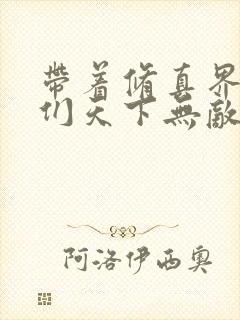 帶着脩真界
们天下無敵
阿洛伊西奥